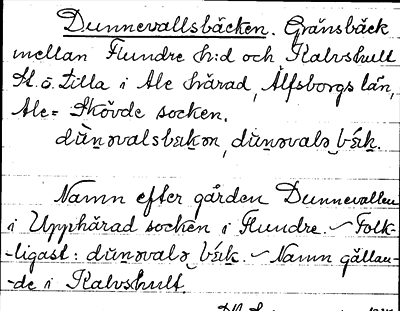 Dunnevallsbäcken. Gränsbäck
mellan Flundre h:d och Kalvshult
St. o. Lilla i Ale härad, Älfsborgs län,
Ale-Skövde socken.
dùn̪əvalsbɛkən, dùn̪əvalə bɛ́k.
Namn efter gården Dunnevallen
i Upphärad socken i Flundre. – Folk-
-ligast: dùn̪əvalə bɛ́k. – Namn gällan-
-de i Kalvshult.